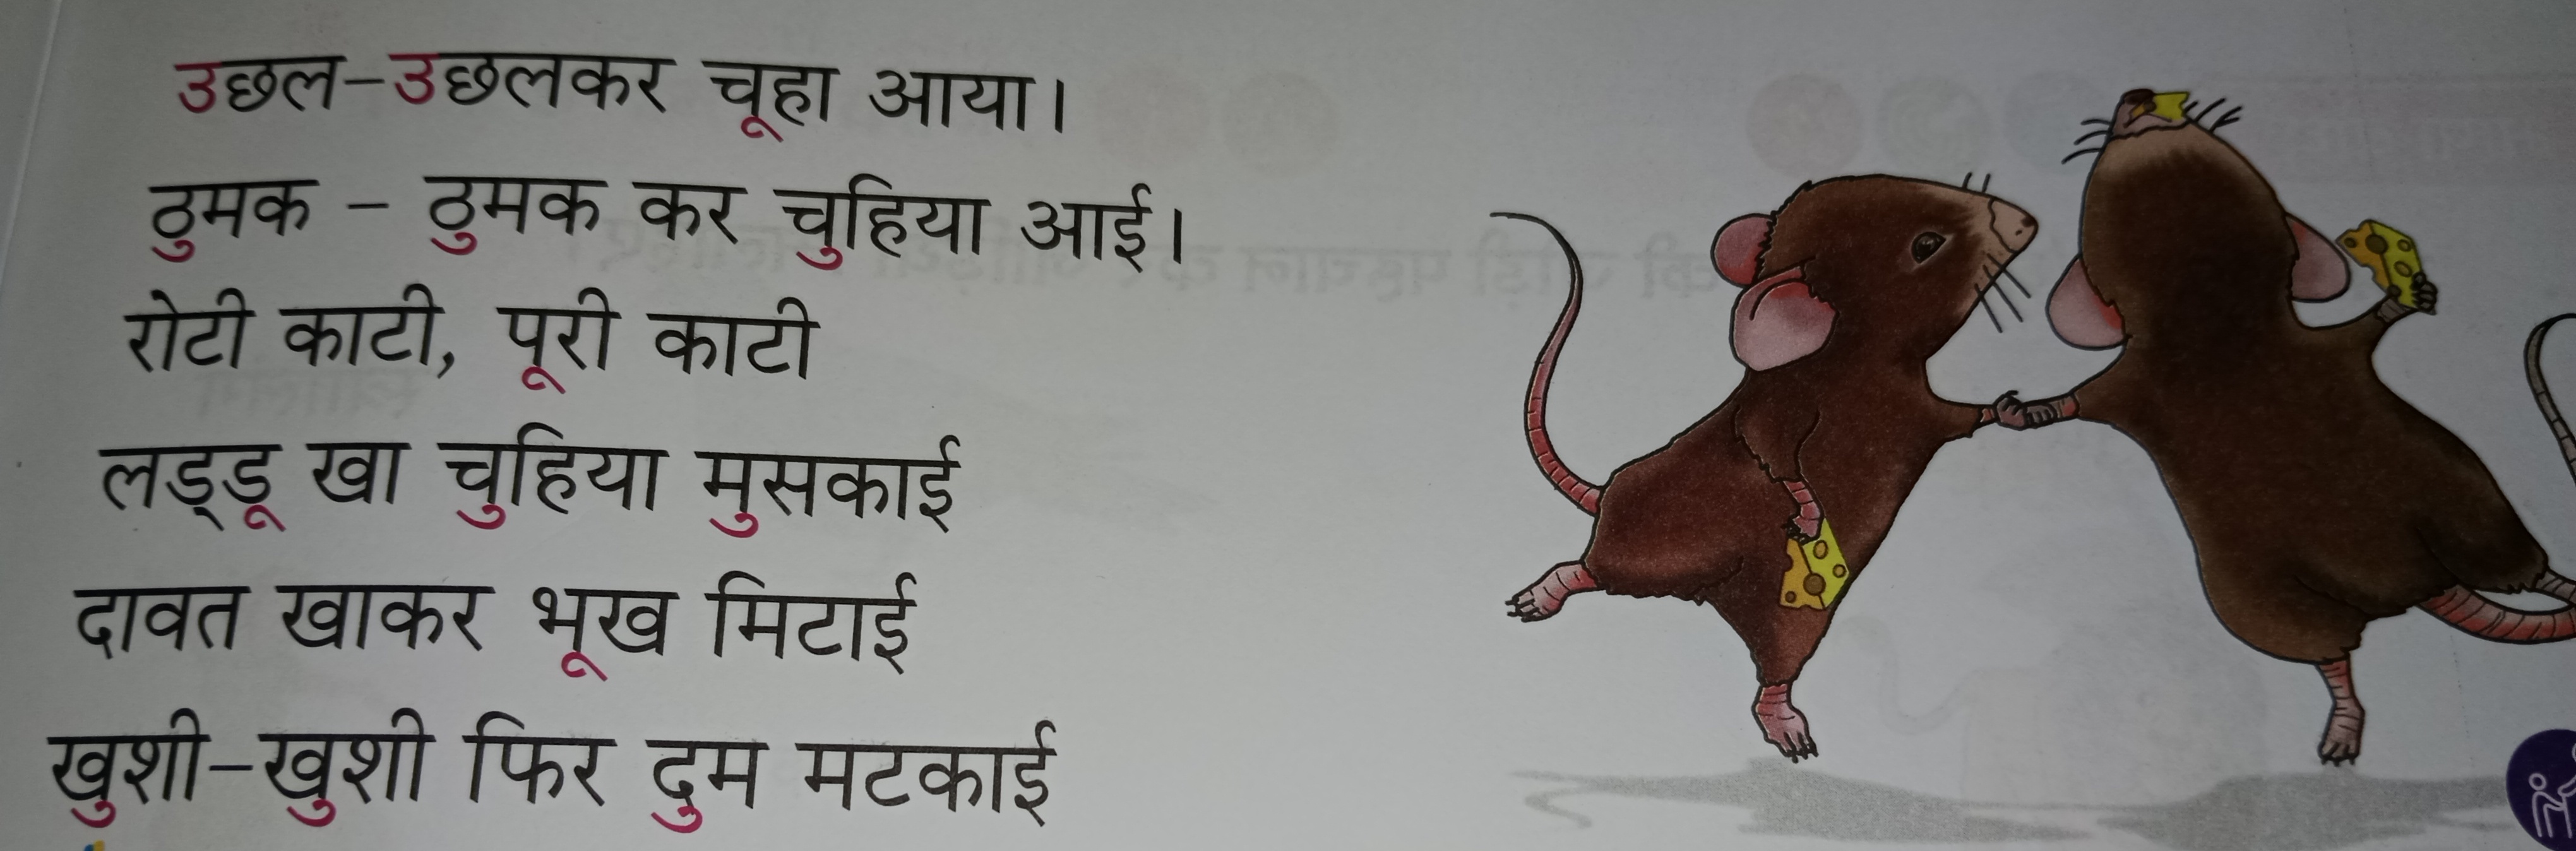 उछल-उछलकर चूहा आया।
ठुमक - ठुमक कर चुहिया आई।
रोटी काटी, पूरी काटी
लड्‌डू खा चुहिया मुसकाई
दावत खाकर भूख मिटाई
खुशी-खुशी फिर दुम मटकाई